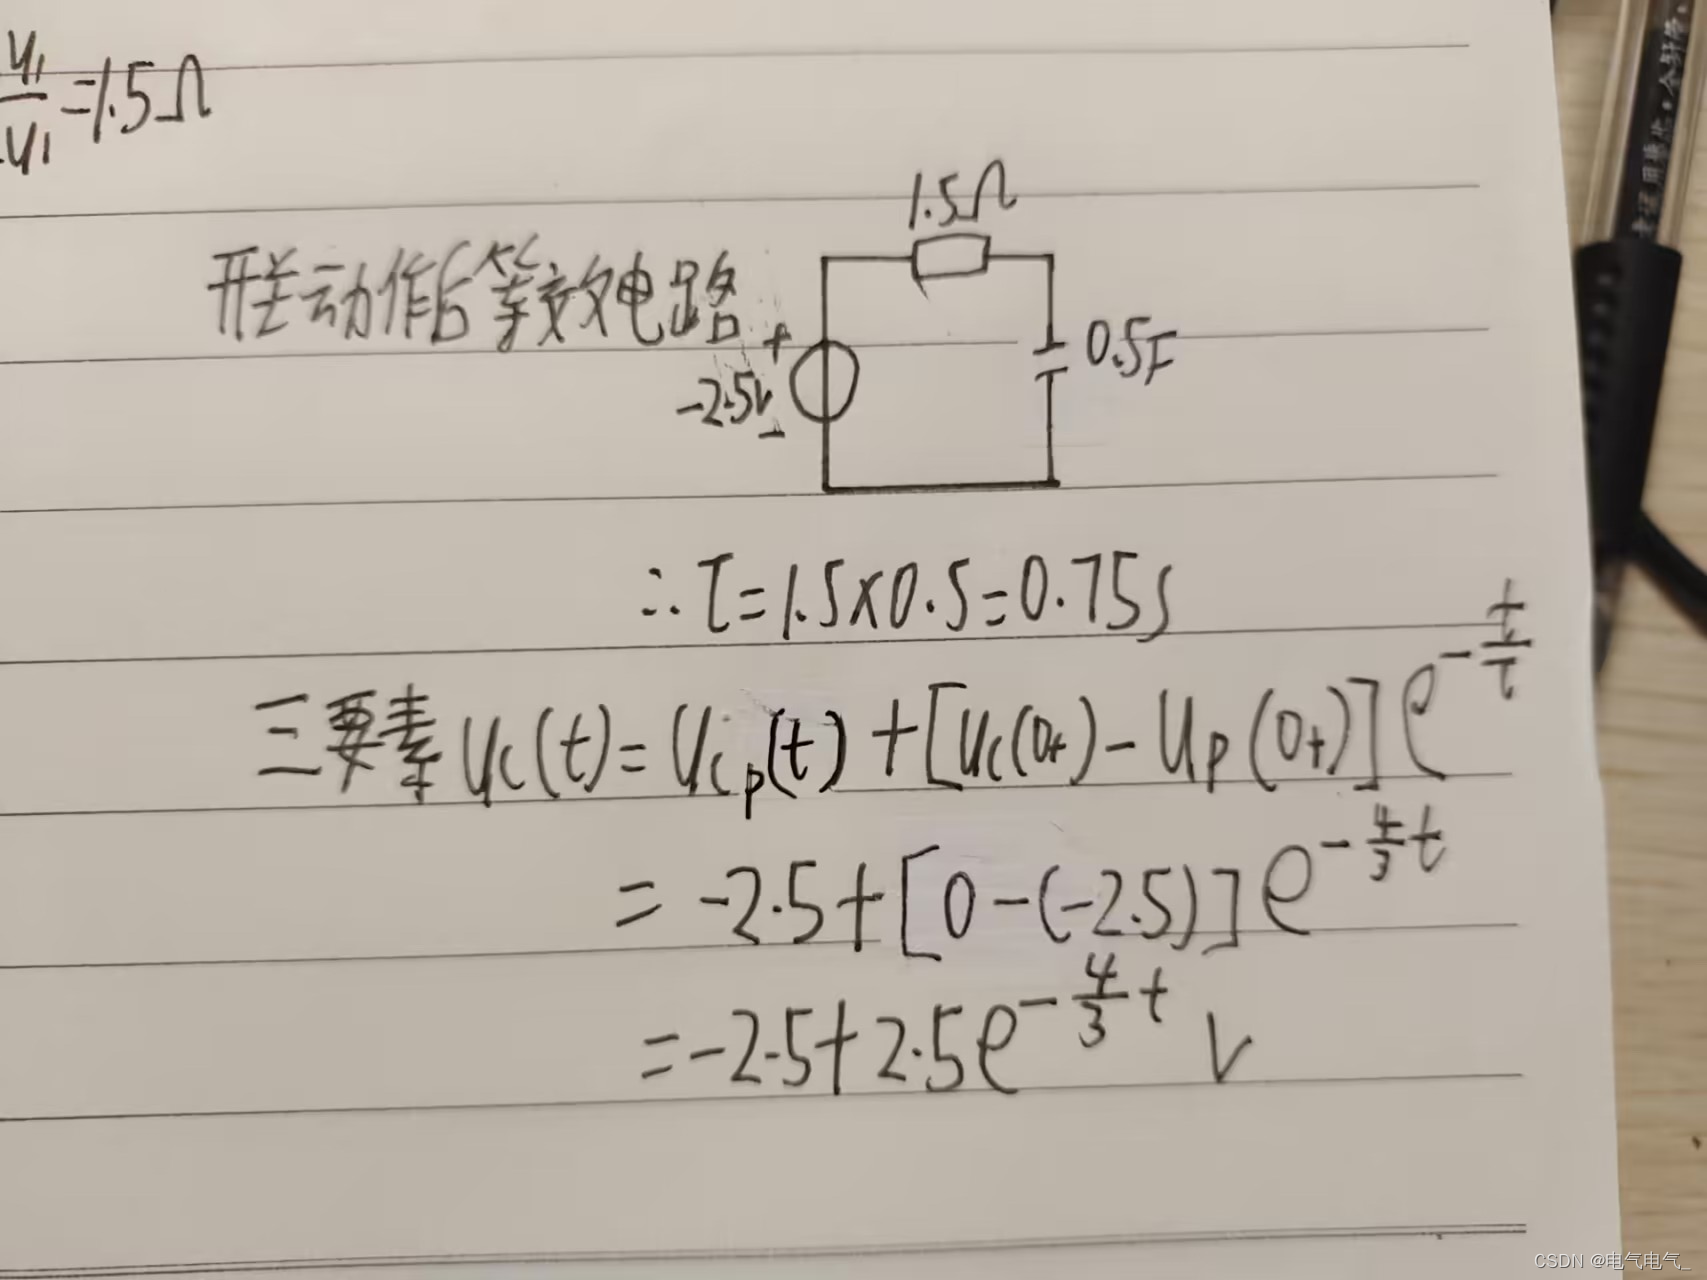 u₁/u₁ =1.5Ω
1.5Ω
开关动作后等效电路
+
-2.5V
-
0.5F
∴τ=1.5×0.5=0.75s
三要素 uc(t)=ucp(t)+[uc(0+)-up(0+)]e^{-t/τ}
=-2.5+[0-(-2.5)]e^{-4/3 t}
=-2.5+2.5e^{-4/3 t} V
CSDN @电气电气_